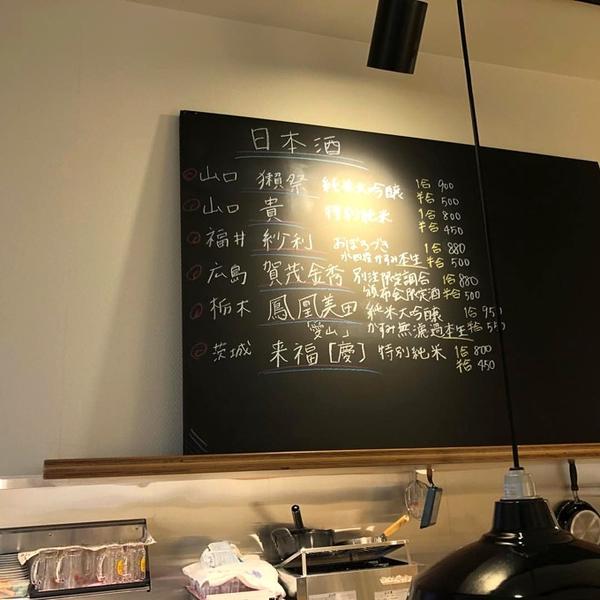 日本酒
山口 獺祭 純米大吟醸 1合 900
半合 500
山口 貴 特別純米 1合 800
半合 450
福井 紗利 おぼろづき 1合 880
かすみ本生 半合 500
広島 賀茂金秀 別注限定調合 1合 880
頒布会限定酒 半合 500
栃木 鳳凰美田 純米大吟醸 1合 950
「愛山」 かすみ無濾過本生 半合 550
茨城 来福[慶] 特別純米 1合 800
半合 450